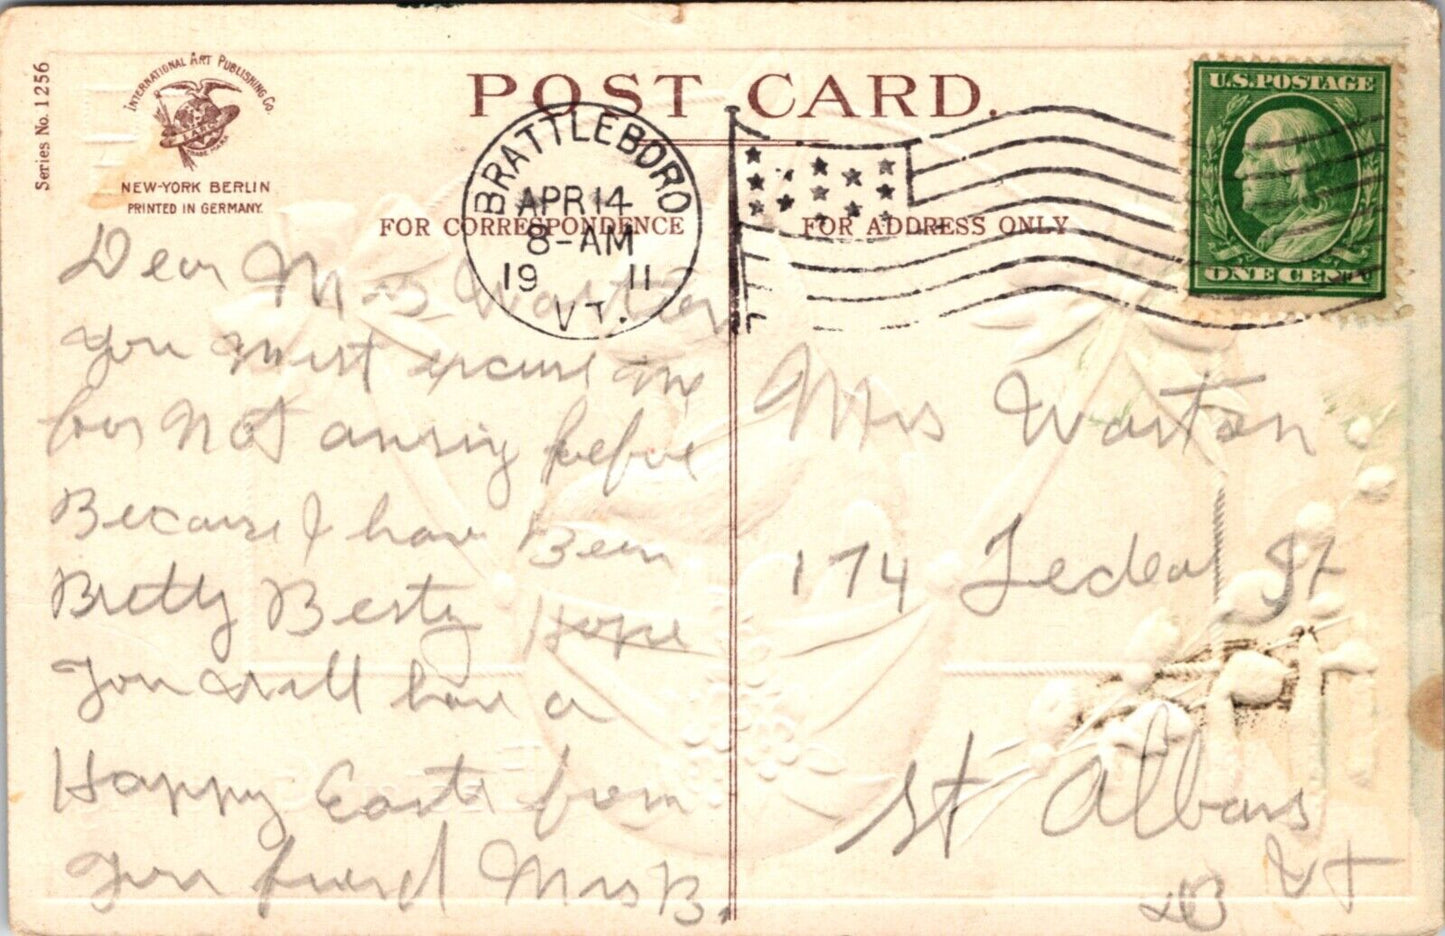 Series No. 1256
INTERNATIONAL ART PUBLISHING CO.
NEW-YORK BERLIN
PRINTED IN GERMANY.
POST CARD.
BRATTLEBORO
APR 14
8-AM
19 11
VT.
FOR CORRESPONDENCE
FOR ADDRESS ONLY
U.S. POSTAGE
ONE CENT
Dear Mrs Warton
you must excuse me
for Not ansring before
Because I have Been
Bretty Besty Hope
you will have a
Happy Easter from
your friend Mrs B.
Mrs Warton
174 Fedeal St
St Albans
Vt